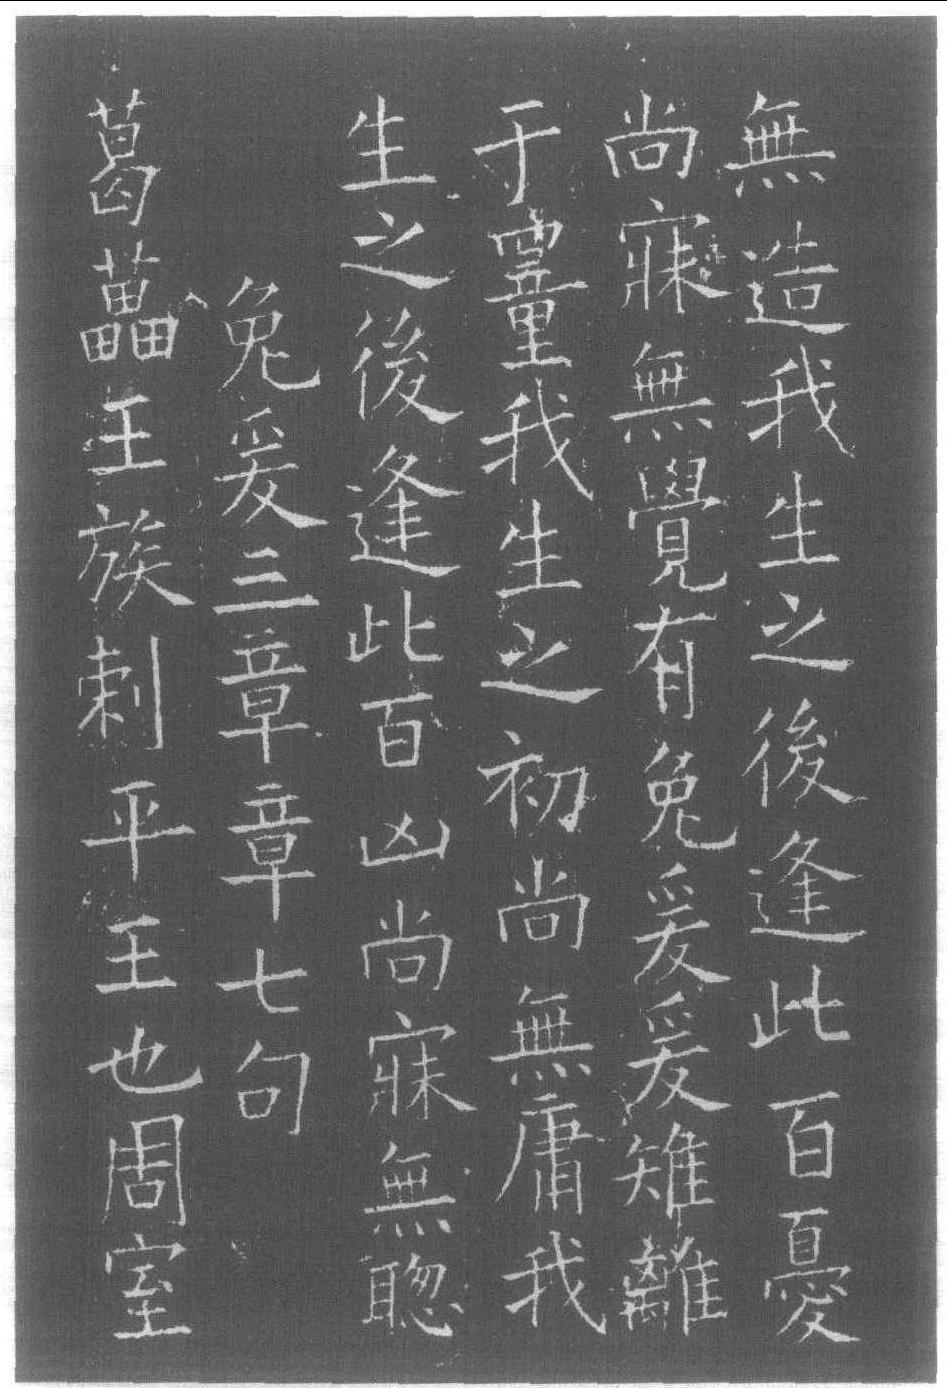 無造我生之後逢此百憂
尚寐無覺有兔爰爰雉離
于罿我生之初尚無庸我
生之後逢此百凶尚寐無聰
兔爰三章章七句
葛藟王族刺平王也周室